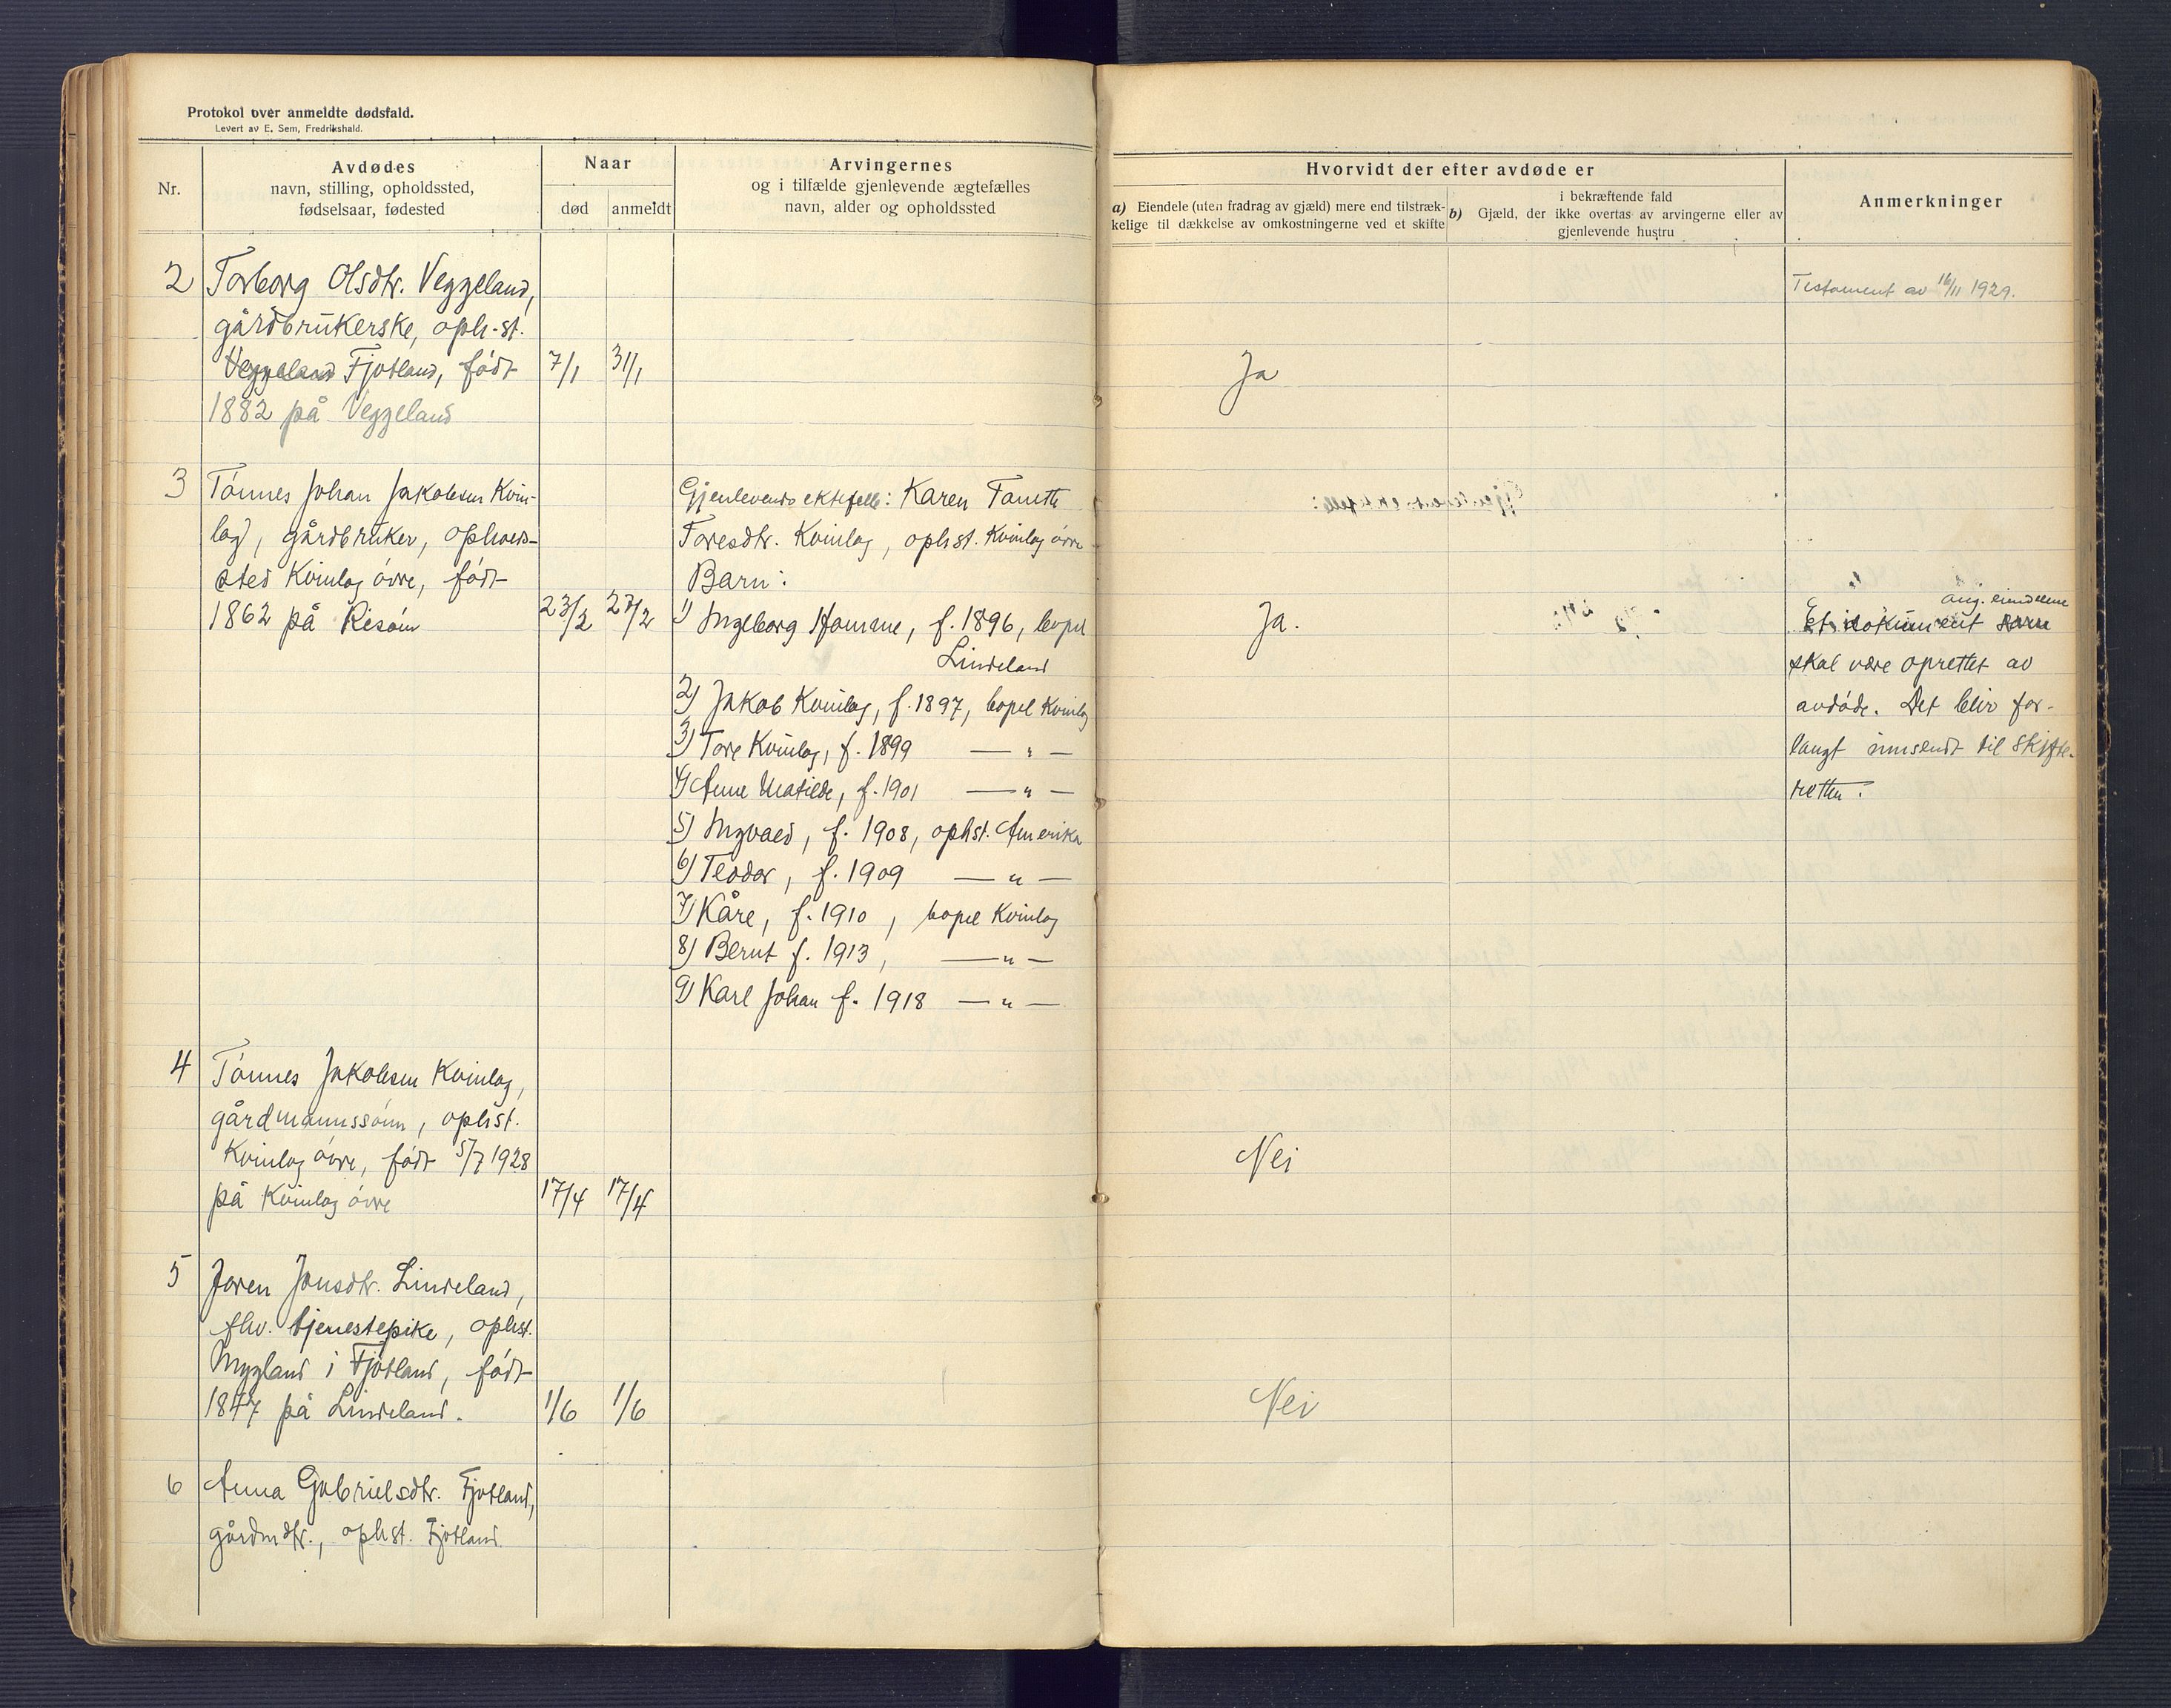 Protokol over anmeldte dødsfald.
Levert av E. Sem, Fredrikshald.
Nr.
Avdødes
navn, stilling, opholdssted,
fødselsaar, fødested
Naar
død
anmeldt
Arvingernes
og i tilfælde gjenlevende ægtefælles
navn, alder og opholdssted
Hvorvidt der efter avdøde er
a) Eiendele (uten fradrag av gjæld) mere end tilstræk-
kelige til dækkelse av omkostningerne ved et skifte
i bekræftende fald
b) Gjæld, der ikke overtas av arvingerne eller av
gjenlevende hustru
Anmerkninger
2 Torborg Olsdtr. Veggeland,
gårdbrukerske, oph.st.
Veggeland Fjotland, født 7/1 31/1
1882 på Veggeland
Ja
Testament av 16/11 1929.
3 Tønnes Johan Jakobsen Kvin-
log, gårdbruker, opholds-
sted Kvinlog øvre, født
1862 på Risøm 23/2 27/2
Gjenlevende ektefelle: Karen
Toresdtr. Kvinlog, ophst. Kvinlog øvre
Barn:
1) Ingeborg Homme, f. 1896, bopel
Lindeland
2) Jakob Kvinlog, f. 1897, bopel Kvinlog
3) Tore Kvinlog, f. 1899 — " —
4) Anne Matilde, f. 1901 — " —
5) Ingvald, f. 1908, ophst. Amerika
6) Teodor, f. 1909 — " —
7) Kåre, f. 1910, bopel Kvinlog
8) Bernt f. 1913, — " —
9) Karl Johan f. 1918 — " —
Ja.
ang. eiendelene
Et dokument som
skal være oprettet av
avdøde. Det blir for-
langt innsendt til skifte-
retten.
4 Tønnes Jakobsen Kvinlog,
gårdmannssønn, ophst.
Kvinlog øvre, født 5/7 1928
på Kvinlog øvre 17/4 17/4
Nei
5 Joren Jonsdtr. Lindeland,
fhv. tjenestepike, ophst.
Knygland i Fjotland, født
1847 på Lindeland. 1/6 1/6
Nei
6 Anna Gabrielsdtr. Fjotland,
gårdmdtr., ophst. Fjotland